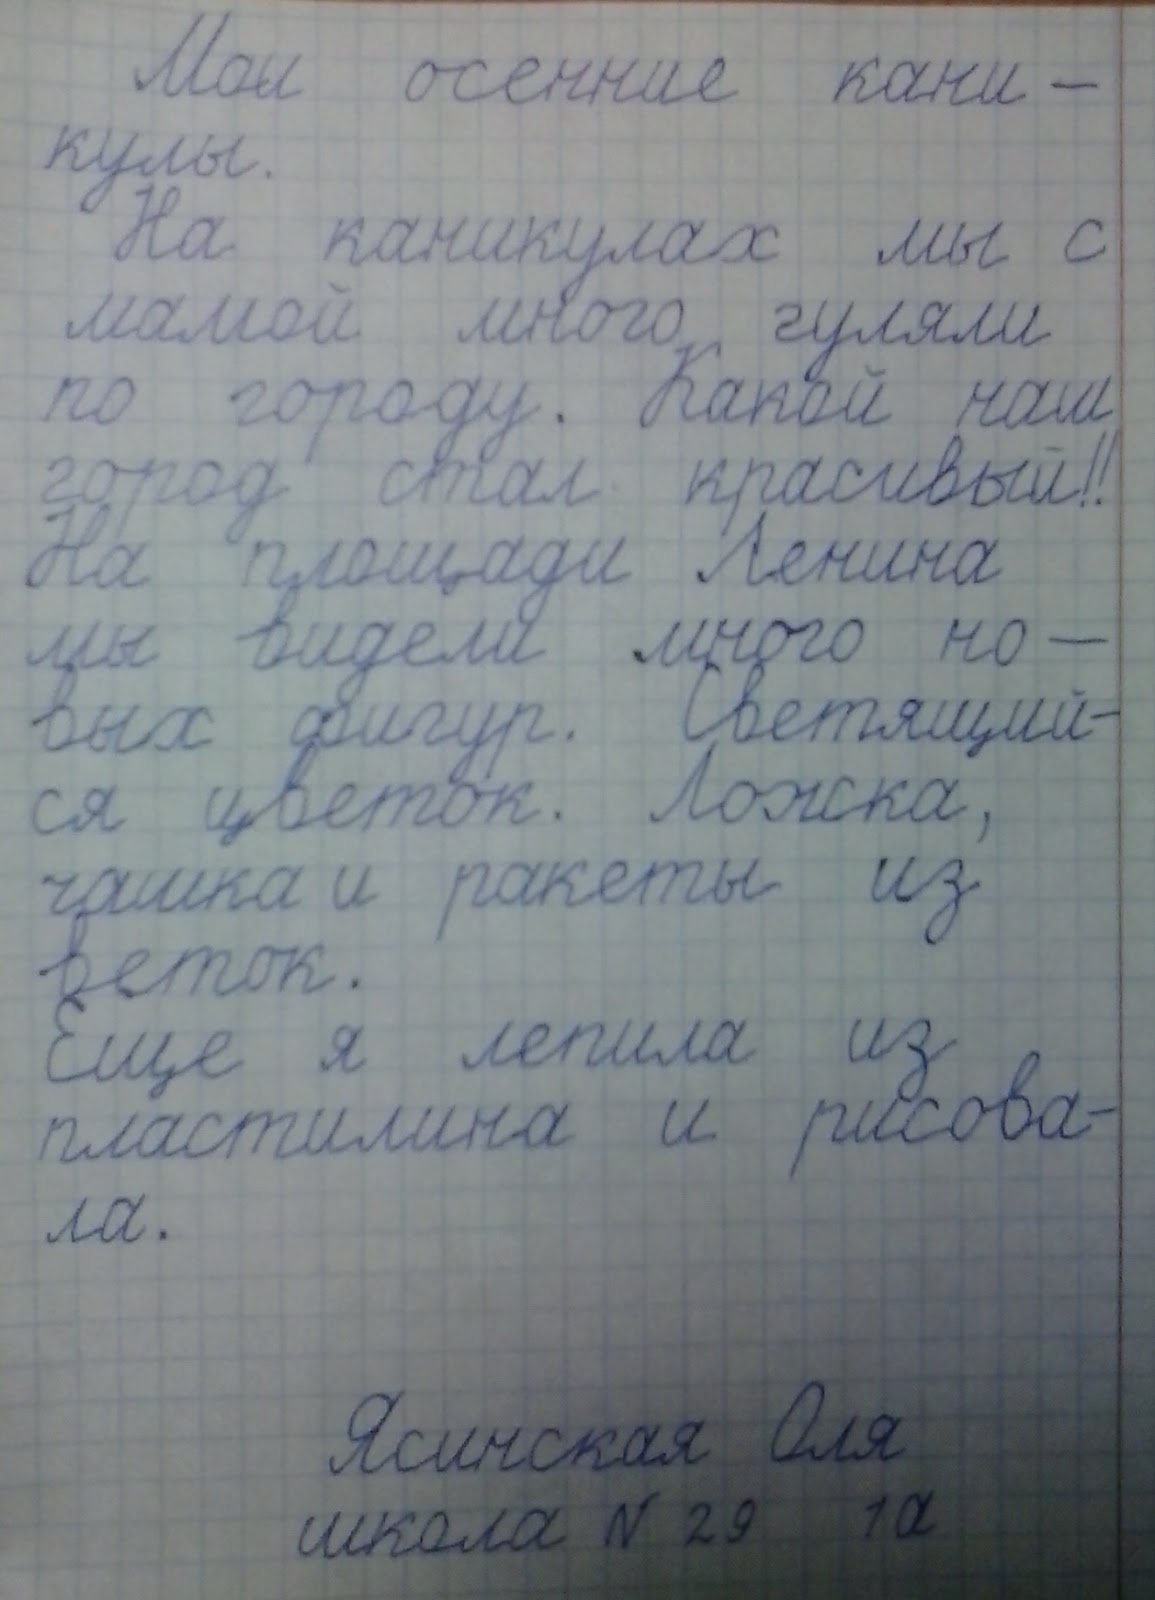 Мои осенние кани-
кулы.
На каникулах мы с
мамой много гуляли
по городу. Какой наш
город стал красивый!!
На площади Ленина
мы видели много но-
вых фигур. Светящий-
ся цветок. Ложка,
чашка и ракеты из
веток.
Еще я лепила из
пластилина и рисова-
ла.
Ясинская Оля
школа N 29 1а